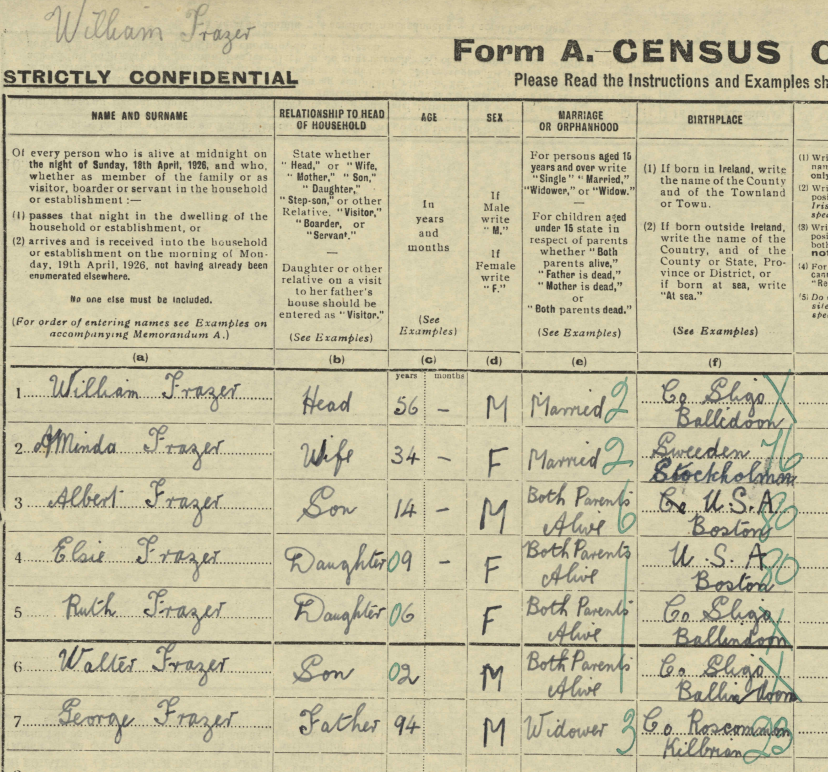 William Frazer
Form A.—CENSUS
STRICTLY CONFIDENTIAL
Please Read the Instructions and Examples
NAME AND SURNAME
RELATIONSHIP TO HEAD
OF HOUSEHOLD
AGE
SEX
MARRIAGE
OR ORPHANHOOD
BIRTHPLACE
Of every person who is alive at midnight on
the night of Sunday, 18th April, 1926, and who,
whether as member of the family or as
visitor, boarder or servant in the household
or establishment :—
(1) passes that night in the dwelling of the
household or establishment, or
(2) arrives and is received into the household
or establishment on the morning of Mon-
day, 19th April, 1926, not having already been
enumerated elsewhere.
No one else must be included.
(For order of entering names see Examples on
accompanying Memorandum A.)
State whether
"Head," or "Wife,
"Mother," "Son,"
"Daughter,"
"Step-son," or other
Relative, "Visitor,"
"Boarder, or
"Servant."
—
Daughter or other
relative on a visit
to her father's
house should be
entered as "Visitor."
(See Examples)
In
years
and
months
(See
Examples)
If
Male
write
"M."
If
Female
write
"F."
For persons aged 15
years and over write
"Single" "Married,"
"Widower," or "Widow."
—
For children aged
under 15 state in
respect of parents
whether "Both
parents alive,"
"Father is dead,"
"Mother is dead,"
or
"Both parents dead."
(See Examples)
(1) If born in Ireland, write
the name of the County
and of the Townland
or Town.
(2) If born outside Ireland,
write the name of the
Country, and of the
County or State, Pro-
vince or District, or
if born at sea, write
"At sea."
(See Examples)
(a) (b) (c) (d) (e) (f)
years months
1 William Frazer Head 56 – M Married 2 Co Sligo
Ballidoon
2 Minda Frazer Wife 34 – F Married 2 Sweeden 76
Stockholmm
3 Albert Frazer Son 14 – M Both Parents U.S.A 80
Alive 6 Boston
4 Elsie Frazer Daughter 09 – F Both Parents U.S.A 80
Alive Boston
5 Ruth Frazer Daughter 06 F Both Parents Co Sligo
Alive Ballindoon
6 Walter Frazer Son 02 M Both Parents Co Sligo
Alive Ballindoon
7 George Frazer Father 94 M Widower 3 Co Roscommon
Kilbrian 23